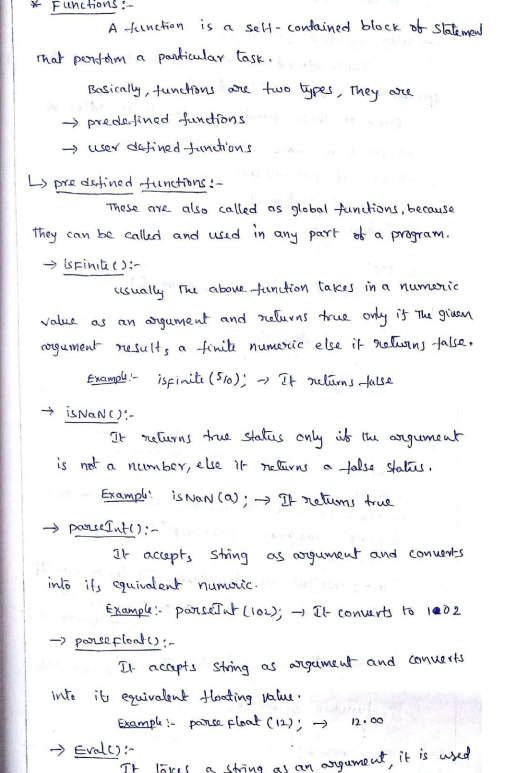 * Functions:-
A function is a self-contained block of statement
that perform a particular task.
Basically, functions are two types, They are
→ predefined functions
→ user defined functions
↳ pre defined functions:-
These are also called as global functions, because
they can be called and used in any part of a program.
→ isFinite():-
usually The above function takes in a numeric
value as an argument and returns true only if The given
argument results a finite numeric else it returns false.
Example:- isfinite(5/0); → It returns false
→ isNaN():-
It returns true status only if the argument
is not a number, else it returns a false status.
Example: isNaN(a); → It returns true
→ parseInt():-
It accepts string as argument and converts
into its equivalent numeric.
Example:- parseInt(102); → It converts to 102
→ parsefloat():-
It accepts string as argument and converts
into its equivalent floating value.
Example:- parse float(12); → 12.00
→ Eval():-
It takes a string as an argument, it is used